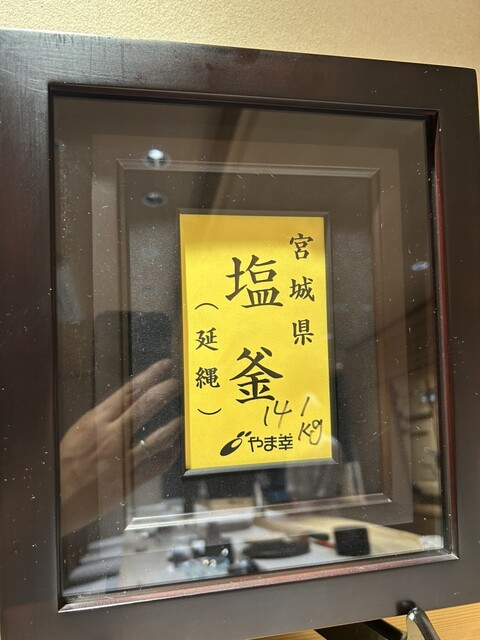 宮城県
塩釜
（延縄）
141kg
やま幸